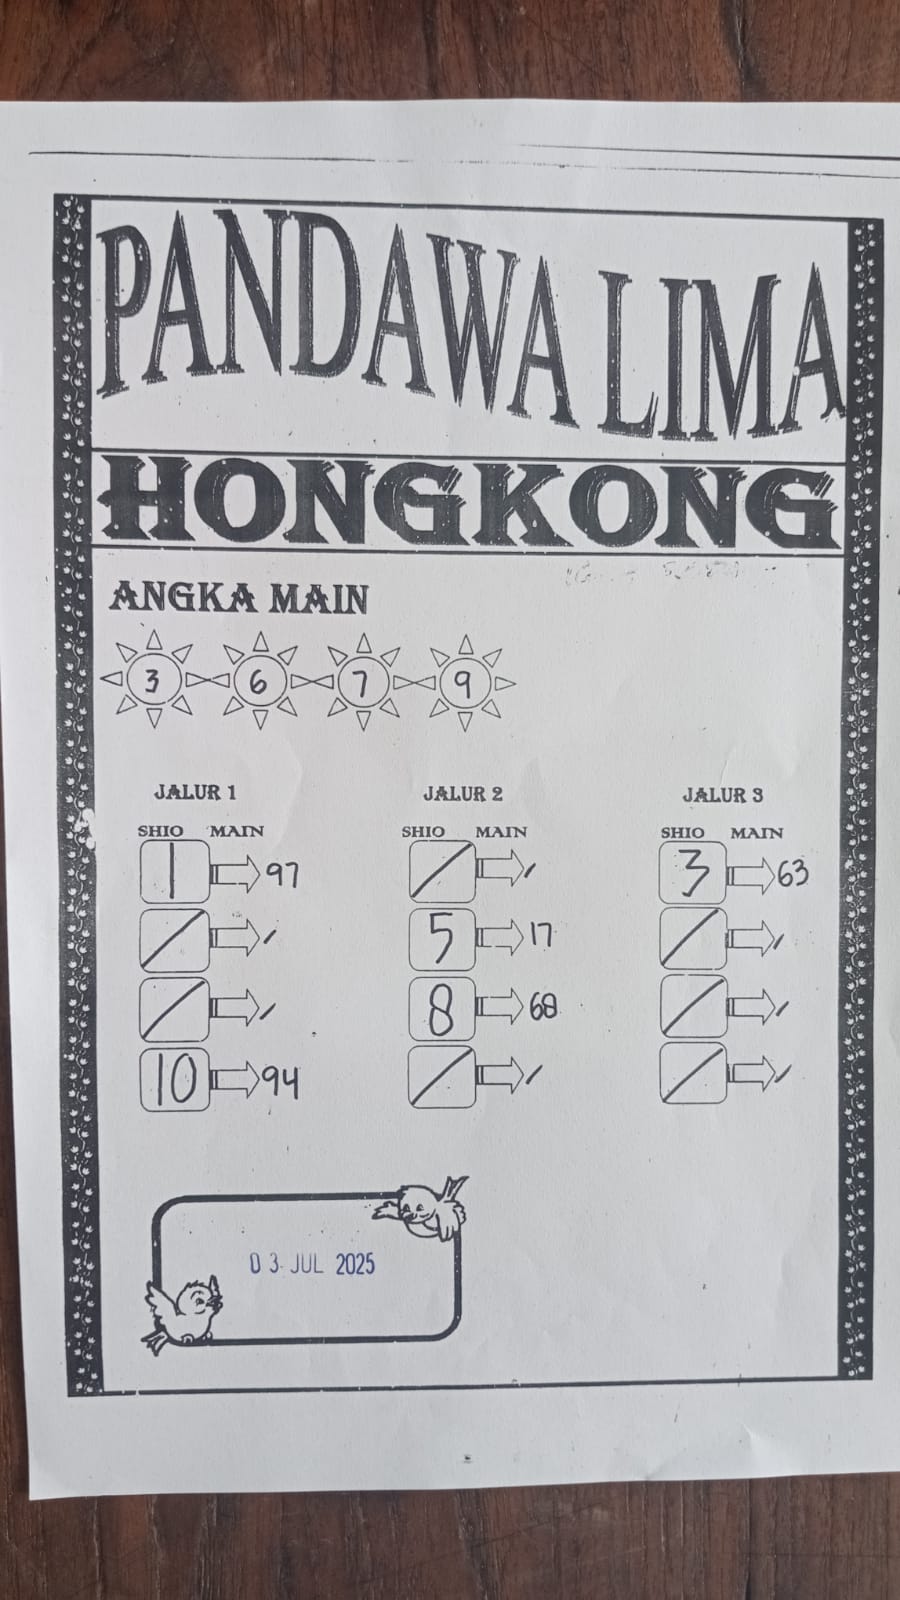 PANDAWA LIMA
HONGKONG
ANGKA MAIN
3 6 7 9
JALUR 1 JALUR 2 JALUR 3
SHIO MAIN SHIO MAIN SHIO MAIN
1 97 / / 3 63
/ / 5 17 / /
/ / 8 68 / /
10 94 / / / /
03 JUL 2025